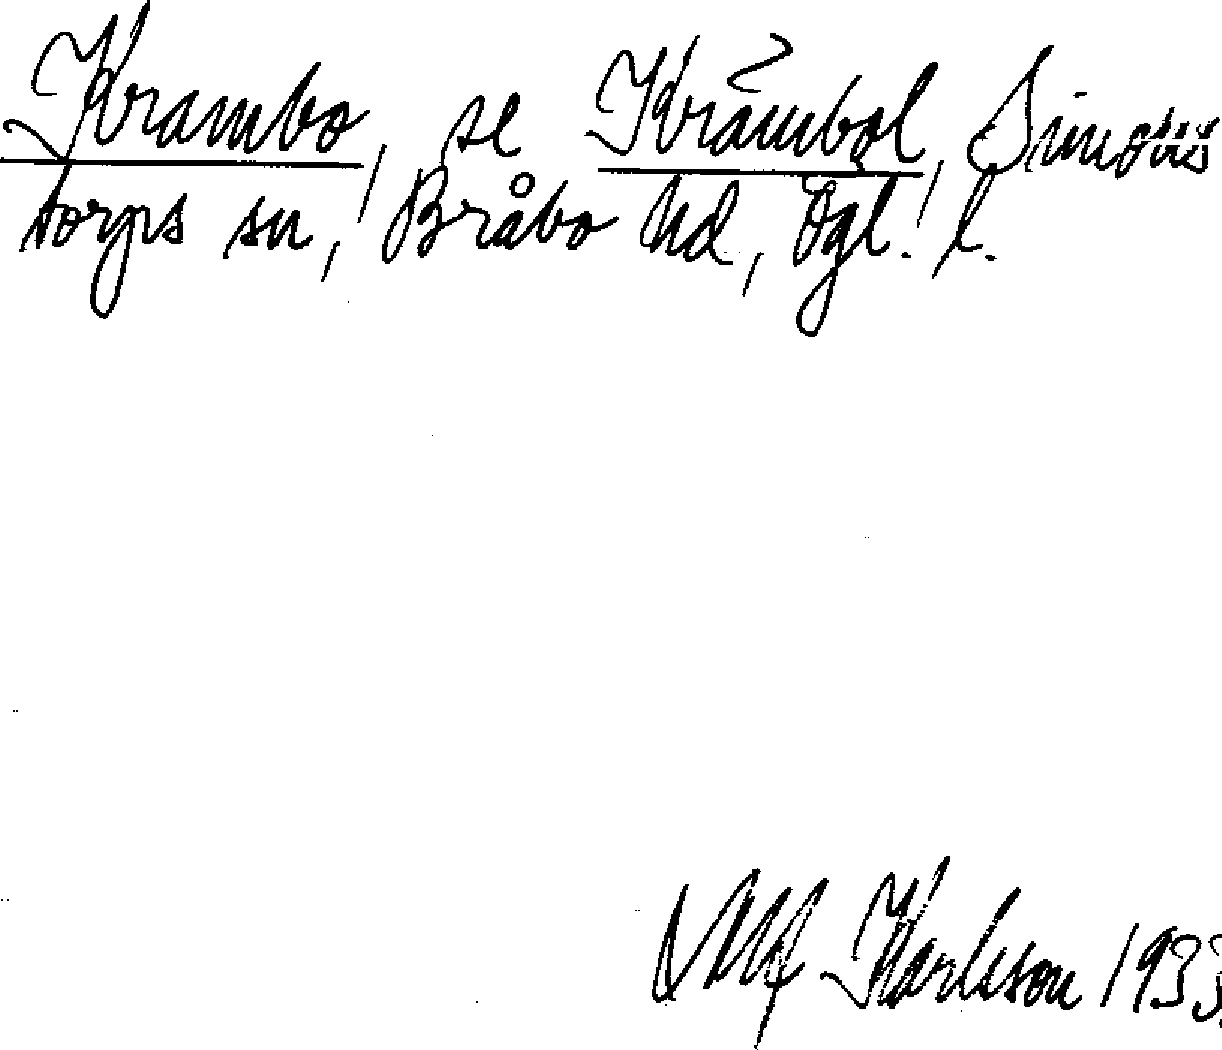 Krambo, se Kråmbol, Simons
torps sn, Bråbo hd, Ögl. l.
Ulf Karlsson 1933.